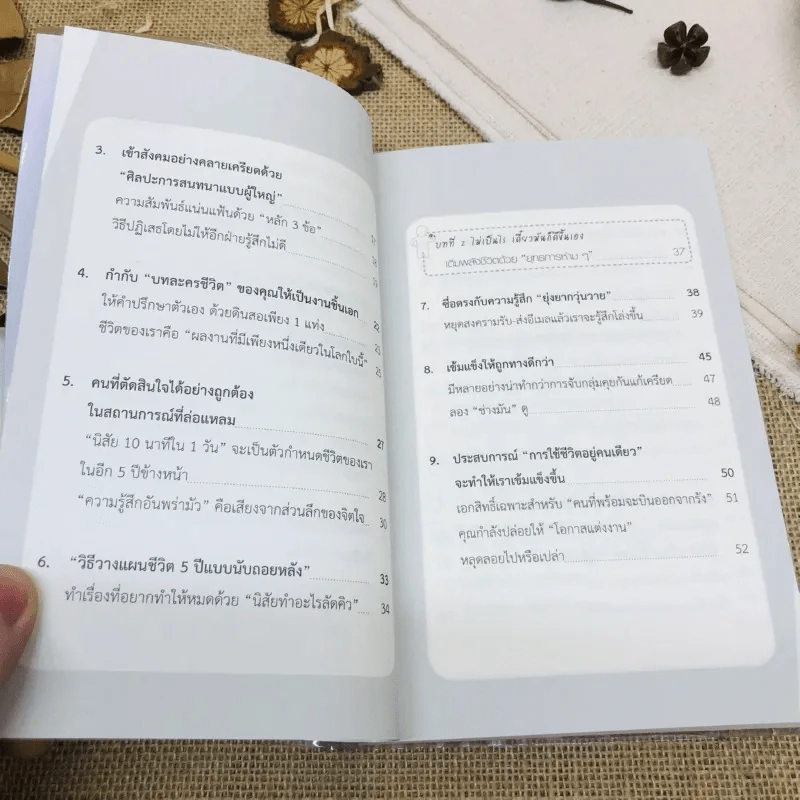 3. เข้าสังคมอย่างคลายเครียดด้วย
“ศิลปะการสนทนาแบบผู้ใหญ่”
ความสัมพันธ์แน่นแฟ้นด้วย “หลัก 3 ข้อ”
วิธีปฏิเสธโดยไม่ให้อีกฝ่ายรู้สึกไม่ดี
4. กำกับ “บทละครชีวิต” ของคุณให้เป็นงานชิ้นเอก
ให้คำปรึกษาตัวเอง ด้วยดินสอเพียง 1 แท่ง
ชีวิตของเราคือ “ผลงานที่มีเพียงหนึ่งเดียวในโลกใบนี้” 25
5. คนที่ตัดสินใจได้อย่างถูกต้อง
ในสถานการณ์ที่ล่อแหลม 27
“นิสัย 10 นาทีใน 1 วัน” จะเป็นตัวกำหนดชีวิตของเรา
ในอีก 5 ปีข้างหน้า 28
“ความรู้สึกอันพร่ามัว” คือเสียงจากส่วนลึกของจิตใจ 30
6. “วิธีวางแผนชีวิต 5 ปีแบบนับถอยหลัง” 33
ทำเรื่องที่อยากทำให้หมดด้วย “นิสัยทำอะไรลัดคิว” 34
บทที่ 2 ไม่เป็นไร เดี๋ยวมันก็ดีขึ้นเอง
เติมพลังชีวิตด้วย “ยุทธการห่าม ๆ” 37
7. ซื่อตรงกับความรู้สึก “ยุ่งยากวุ่นวาย” 38
หยุดสงครามรับ-ส่งอีเมลแล้วเราจะรู้สึกโล่งขึ้น 39
8. เข้มแข็งให้ถูกทางดีกว่า 45
มีหลายอย่างน่าทำกว่าการจับกลุ่มคุยกันแก้เครียด 47
ลอง “ช่างมัน” ดู 48
9. ประสบการณ์ “การใช้ชีวิตอยู่คนเดียว”
จะทำให้เราเข้มแข็งขึ้น 50
เอกสิทธิ์เฉพาะสำหรับ “คนที่พร้อมจะบินออกจากรัง” 51
คุณกำลังปล่อยให้ “โอกาสแต่งงาน”
หลุดลอยไปหรือเปล่า 52